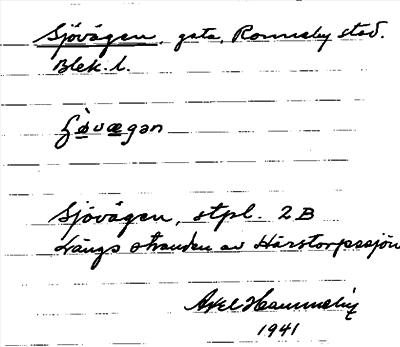 Sjövägen, gata, Ronneby stad.
Blek. l.
Sjövägen, stpl. 2B
Längs stranden av Hårstorpssjön
Axel
1941